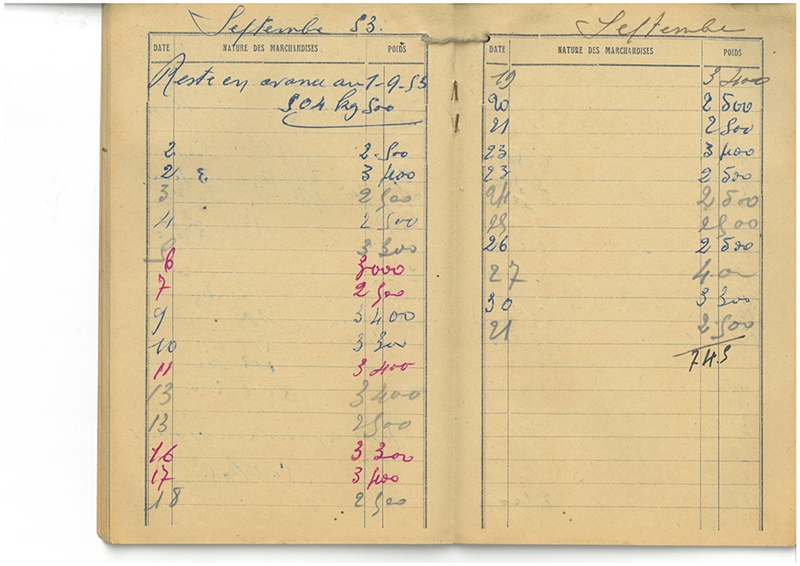 Septembre 53.
DATE NATURE DES MARCHANDISES POIDS
Reste en avance au 1-9-53
504 kg 500
2 2 500
2 3 400
3 2 500
4 2 500
5 3 300
6 3000
7 2 500
9 3 400
10 3 300
11 3 400
13 3 400
13 2500
16 3 300
17 3 400
18 2 500
Septembre
DATE NATURE DES MARCHANDISES POIDS
19 3 400
20 2 500
21 2 500
23 3 400
23 2 500
24 2 500
25 2500
26 2 500
27 400
30 3 300
21 2 500
745